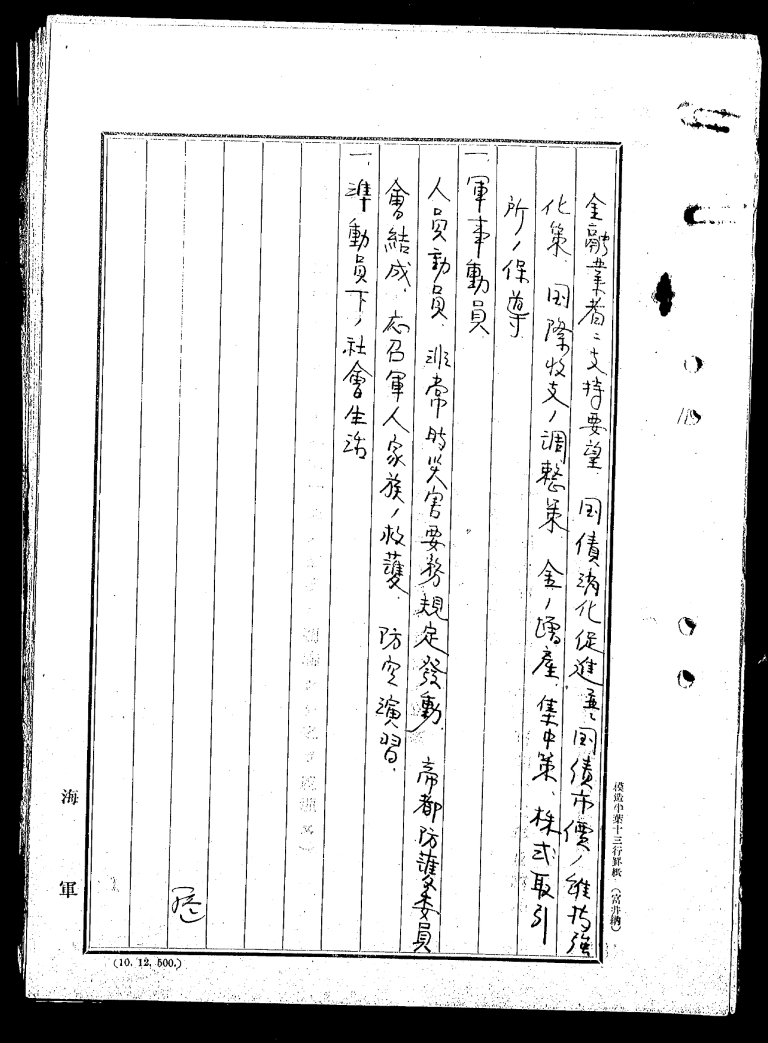 金融業者ニ支持要望、国債消化促進並ニ国債市價ノ維持強
化策、国際收支ノ調整策、金ノ増産、集中策、株式取引
所ノ保導、
一、軍事動員、
人員動員、非常時災害要務規定發動、帝都防護委員
會結成、応召軍人家族ノ救護、防空演習、
一、準動員下ノ社會生活
模造中葉十三行罫紙（富井納）
海軍
(10. 12. 500.)